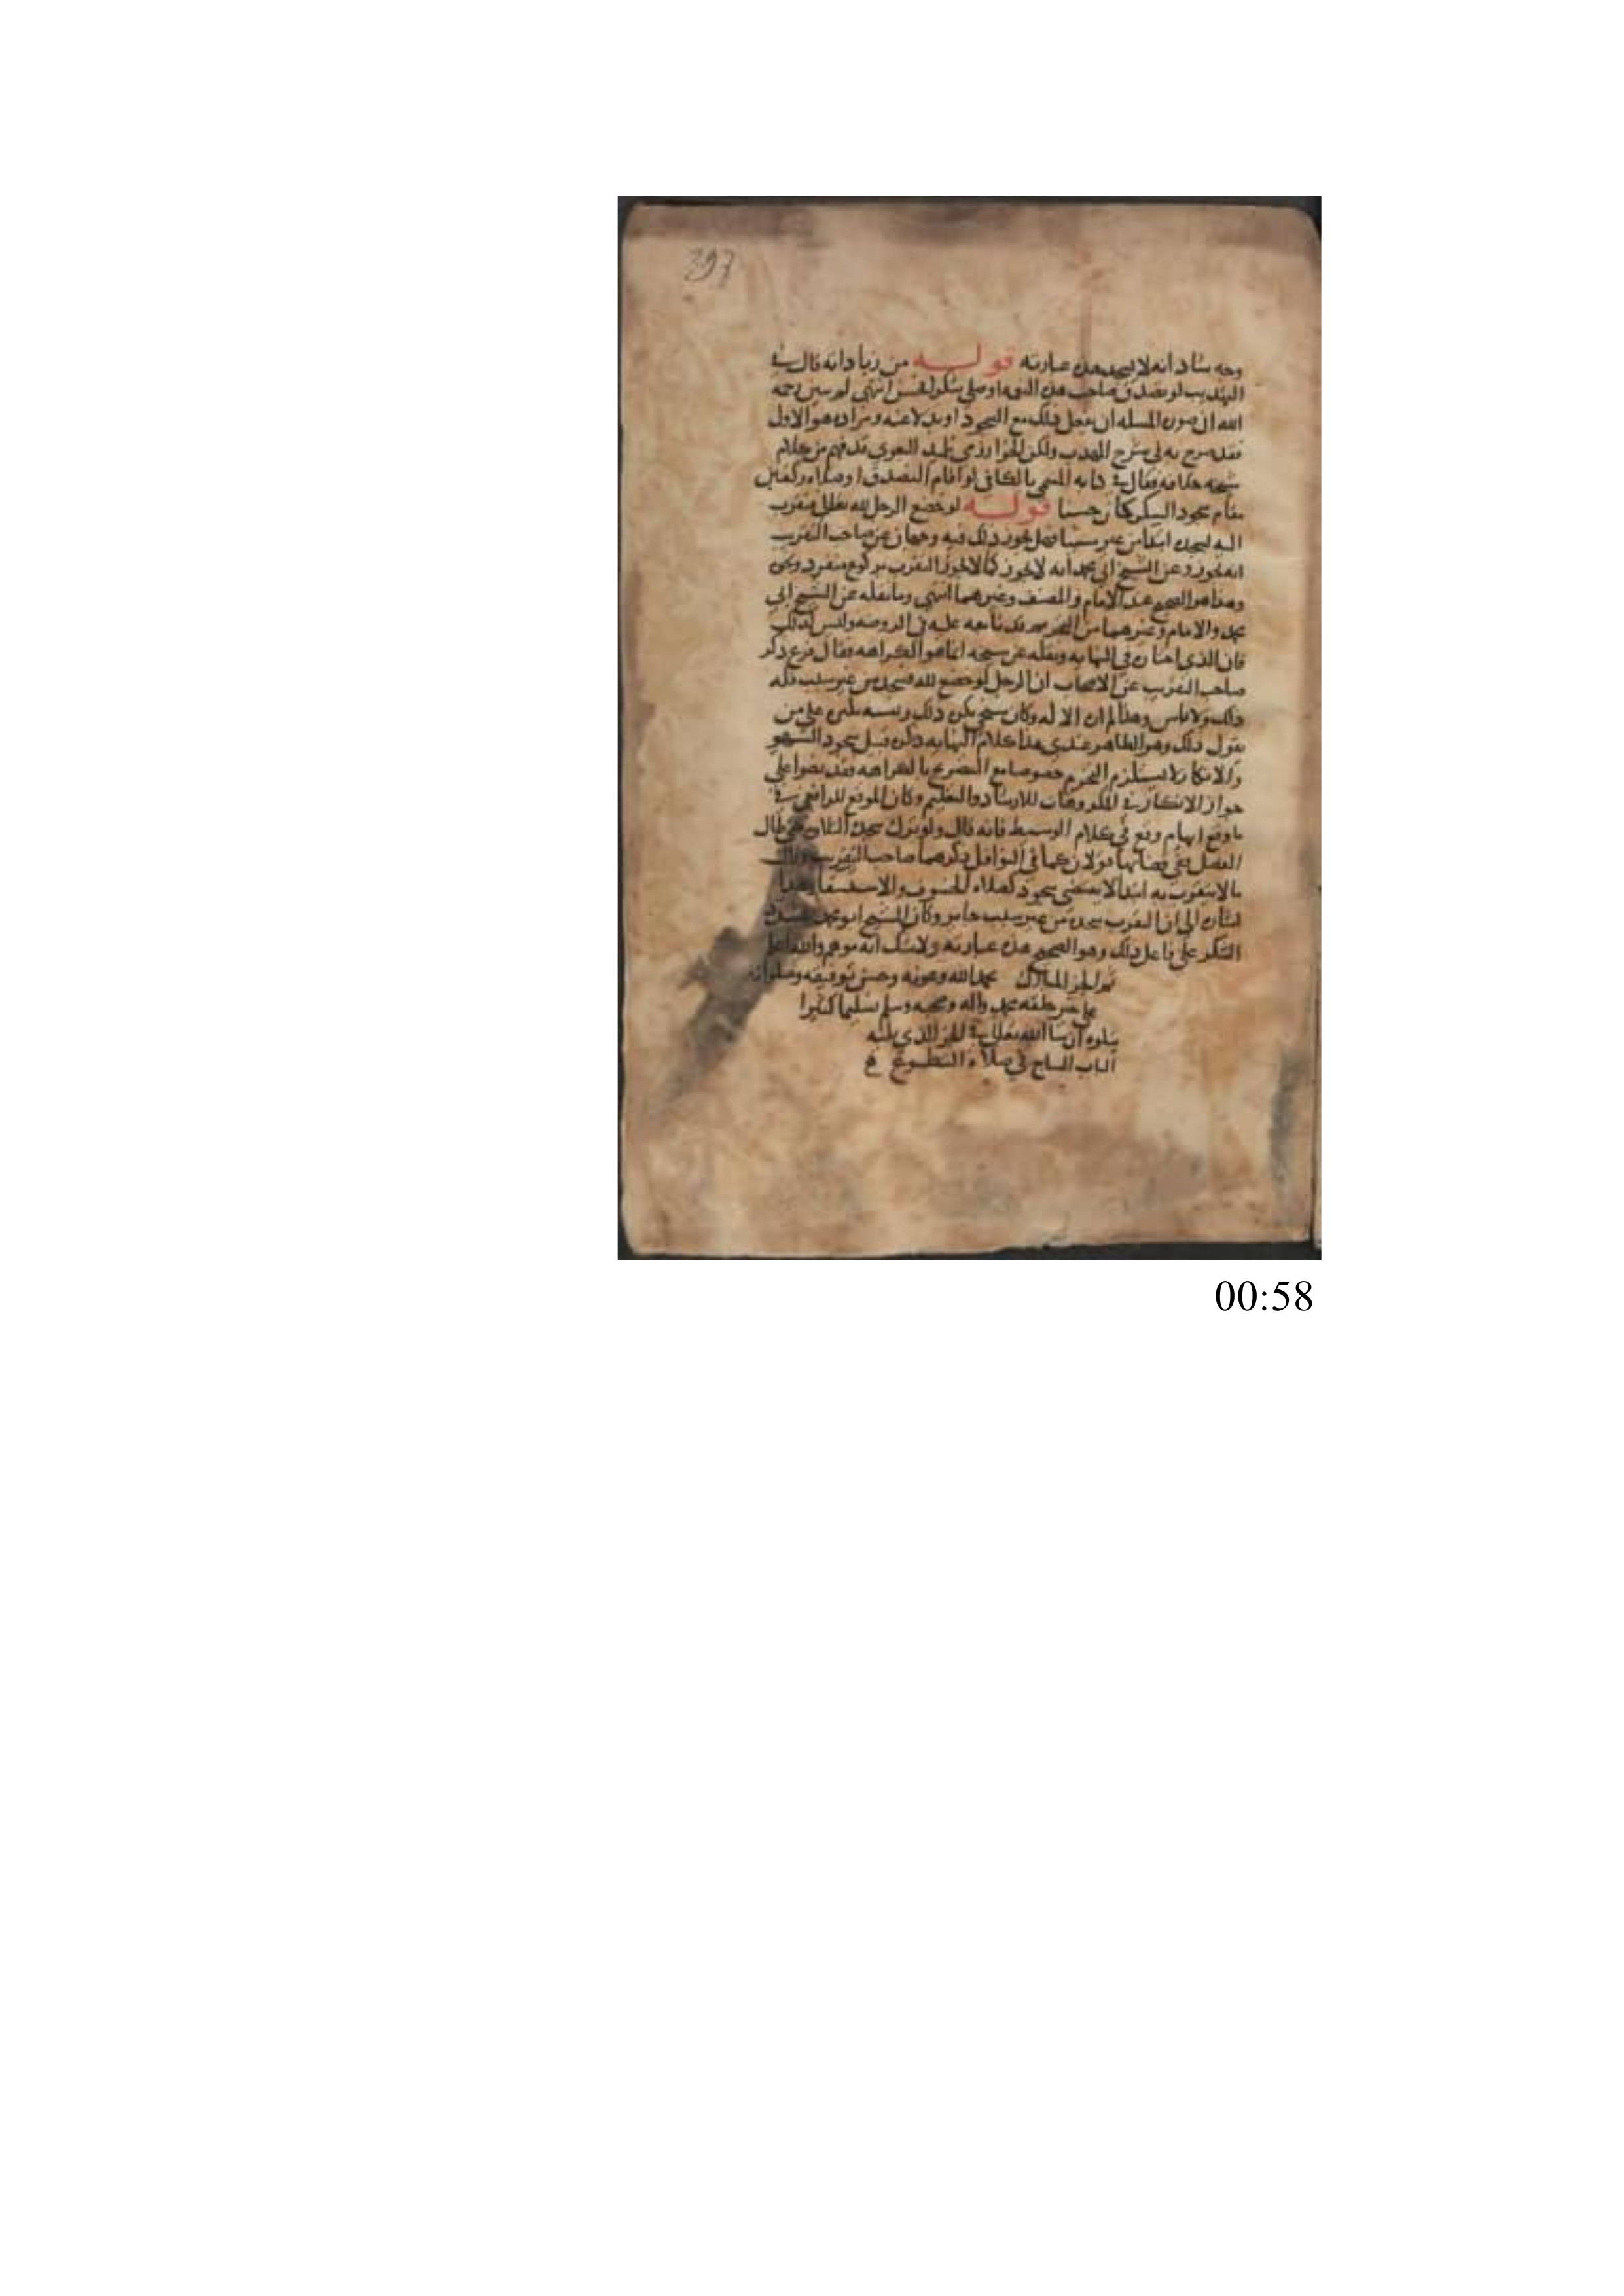 397
وجه شاذ انه لا يسجد هذه عبارته قوله من زياداته قال في
التهذيب لو تصدق صاحب هذه النعمه او صلى شكرا فحسن انتهى لم يبين رحمه
الله ان صوره المسله ان يفعل ذلك مع السجود او بدلا عنه ومراده هو الاول
فقد صرح به في شرح المهذب ولكن الخوارزمي تلميذ البغوي قد فهم من كلام
شيخه خلافه فقال في كتابه المسمى بالكافي لو اقام التصدق او صلاه ركعتين
مقام سجود الشكر كان حسنا قوله لو خضع الرجل لله تعالى فتقرب
اليه بسجده ابتدا من غير سبب فهل يجوز ذلك فيه وجهان عن صاحب التقريب
انه يجوز وعن الشيخ ابي محمد انه لا يجوز كما لا يجوز التقرب بركوع منفرد ونحوه
وهذا هو الصحيح عند الامام والمصنف وغيرهما انتهى وما نقله عن الشيخ ابي
محمد والامام وغيرهما من التحريم قد تابعه عليه في الروضه وليس كذلك
فان الذي اختاره في النهايه ونقله عن شيخه انما هو الكراهه فقال فرع ذكر
صاحب التقريب عن الاصحاب ان الرجل لو خضع لله فسجد من غير سبب فله
ذلك ولا باس وهذا لم ار الا له وكان شيخي يكره ذلك على من
يقول ذلك وهو الظاهر عندي هذا كلام النهايه ذكره قبيل سجود السهو
والانكار لا يستلزم التحريم خصوصا مع التصريح بالكراهه فقد نصوا على
جواز الانكار في المكروهات للارشاد والتعليم وكان الموقع للرافعي في
ما وقع ابهام وقع في كلام الوسيط فانه قال ولو ترك سجده التلاوه حتى طال
الفصل ففي قضائها قولان كما في النوافل ذكرهما صاحب التقريب وقال
ما لا يتقرب به ابتدا لا يقضى سجود كصلاه الخسوف والاستسقا وهذا
اشاره الى ان التقرب بسجده من غير سبب جايز وكان الشيخ ابو محمد يشدد
النكير على فاعل ذلك وهو الصحيح هذه عبارته ولا شك انه موهم والله اعلم
تم الجز المبارك بحمد الله وعونه وحسن توفيقه وصلواته
على خير خلقه محمد واله وصحبه وسلم تسليما كثيرا
يتلوه ان شا الله تعالى في الجز الذي يليه
الباب السابع في صلاه التطوع
00:58